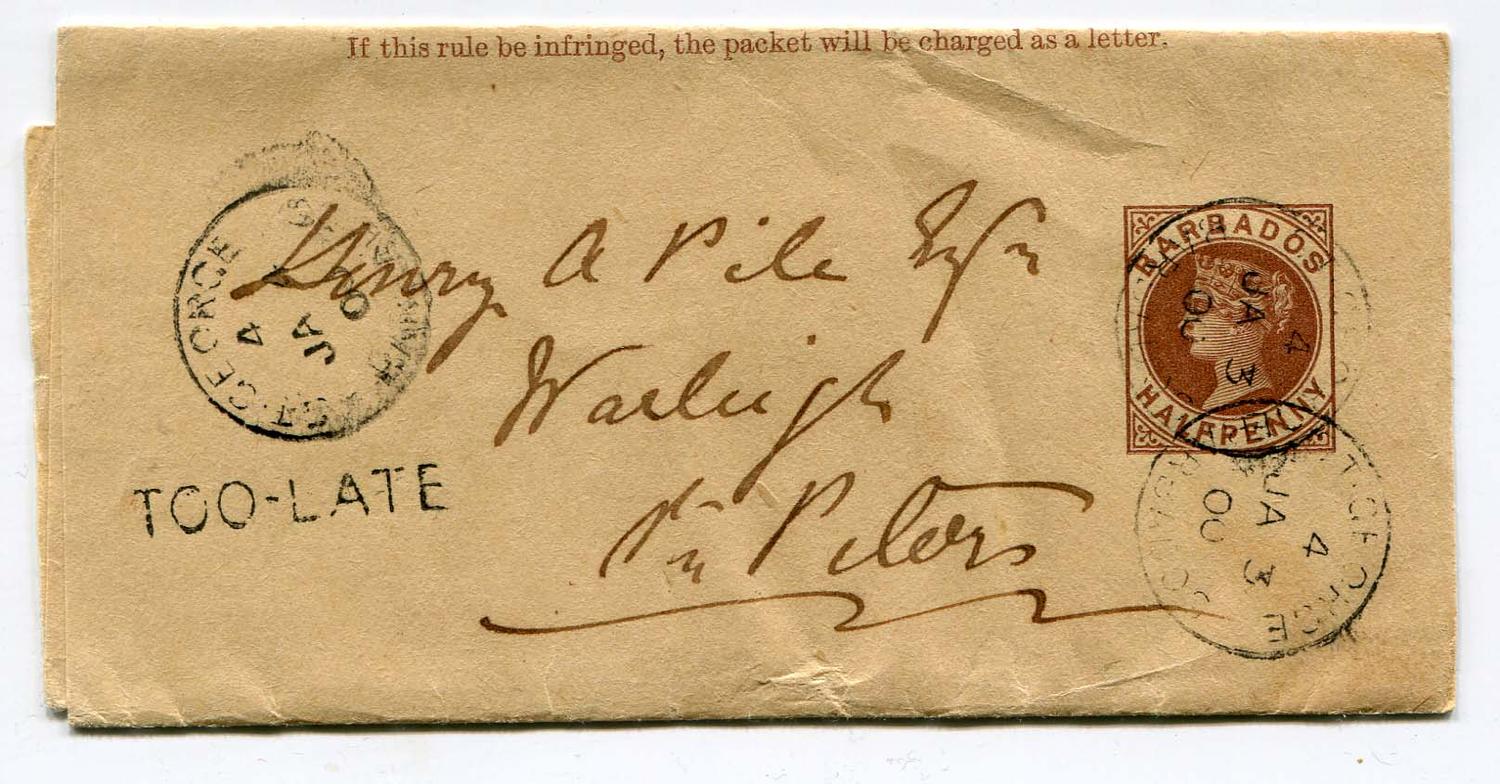 If this rule be infringed, the packet will be charged as a letter.
BARBADOS
HALFPENNY
Henry A Pile Esqr
Warleigh
St. Peters
TOO-LATE
ST. GEORGE
4
JA 4
00
4
JA 3
00
ST. GEORGE
4
JA 3
00
BARBADOS